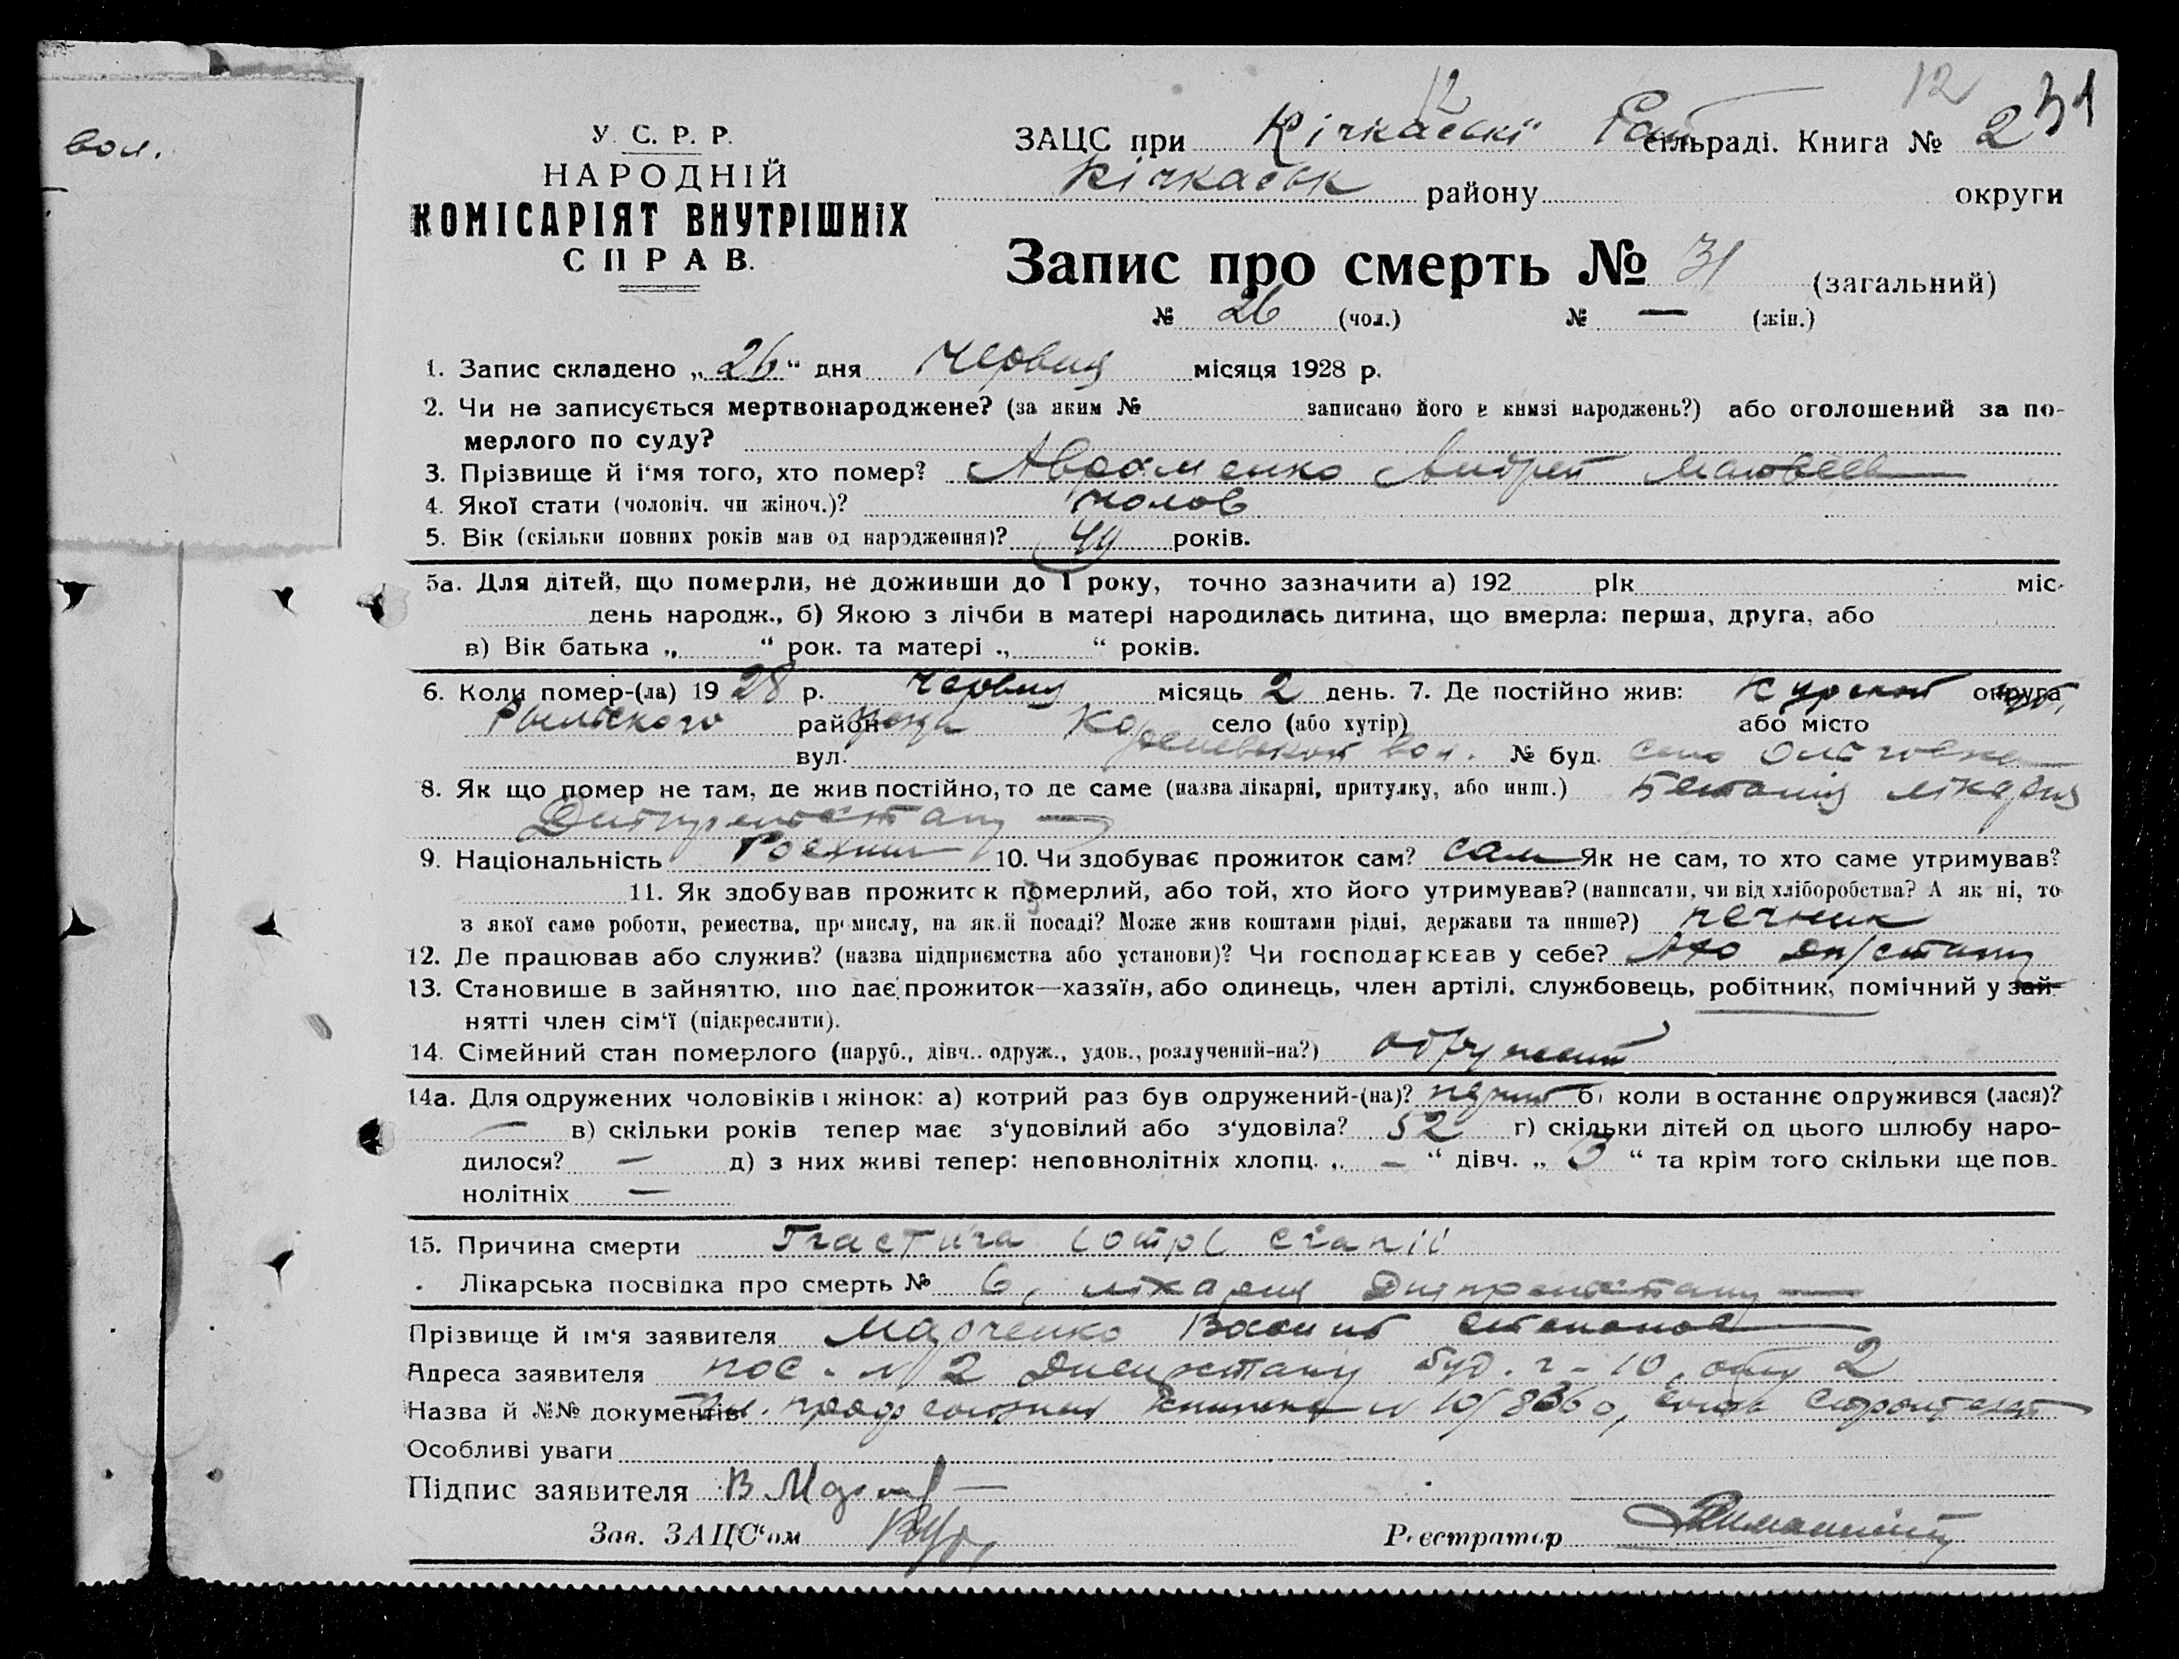 вол.
12
12
31
У. С. Р. Р.
НАРОДНІЙ
КОМІСАРІЯТ ВНУТРІШНІХ
СПРАВ.
ЗАЦС при Кічкаській Рай сільраді. Книга № 2
Кічкаськ району округи
Запис про смерть № 31 (загальний)
№ 26 (чол.) № — (жін.)
1. Запис складено „26“ дня червня місяця 1928 р.
2. Чи не записується мертвонароджене? (за яким № записано його в книзі народжень?) або оголошений за по-
мерлого по суду?
3. Прізвище й і‘мя того, хто помер? Авраменко Андрей Матвеев
4. Якої стати (чоловіч. чи жіноч.)? чолов
5. Вік (скільки повних років мав од народження)? 44 років.
5а. Для дітей, що померли, не доживши до 1 року, точно зазначити а) 192 рік міс.
день народж., б) Якою з лічби в матері народилась дитина, що вмерла: перша, друга, або
в) Вік батька „ “ рок. та матері „ “ років.
6. Коли помер-(ла) 1928 р. червня місяць 2 день. 7. Де постійно жив: Курской округа губ,
Рыльского район уезда Кореневской вол. село (або хутір) або місто
вул. № буд. село
8. Як що помер не там, де жив постійно, то де саме (назва лікарні, притулку, або инш.) лікарня
9. Національність 10. Чи здобуває прожиток сам? сам Як не сам, то хто саме утримував?
11. Як здобував прожиток померлий, або той, хто його утримував? (написати, чи від хліборобства? А як ні, то
з якої саме роботи, ремества, промислу, на якій посаді? Може жив коштами рідні, держави та инше?) печник
12. Де працював або служив? (назва підприємства або установи)? Чи господарював у себе?
13. Становише в зайняттю, що дає прожиток—хазяїн, або одинець, член артілі, службовець, робітник, помічний у зай-
нятті член сім‘ї (підкреслити).
14. Сімейний стан померлого (паруб., дівч.. одруж., удов., розлучений-на?) одружений
14а. Для одружених чоловіків і жінок: а) котрий раз був одружений-(на)? перший б) коли в останнє одружився (лася)?
— в) скільки років тепер має з‘удовілий або з‘удовіла? 52 г) скільки дітей од цього шлюбу наро-
дилося? — д) з них живі тепер: неповнолітніх хлопц. „ — “ дівч. „ 3 “ та крім того скільки ще пов-
нолітніх —
15. Причина смерти
Лікарська посвідка про смерть № 6, лікарня
Прізвище й ім‘я заявителя Марченко Василь Степанов
Адреса заявителя пос. № 2 буд. ч - 10, 2
Назва й №№ документів
Особливі уваги
Підпис заявителя В Марч
Зав. ЗАЦС‘ом Реєстратор